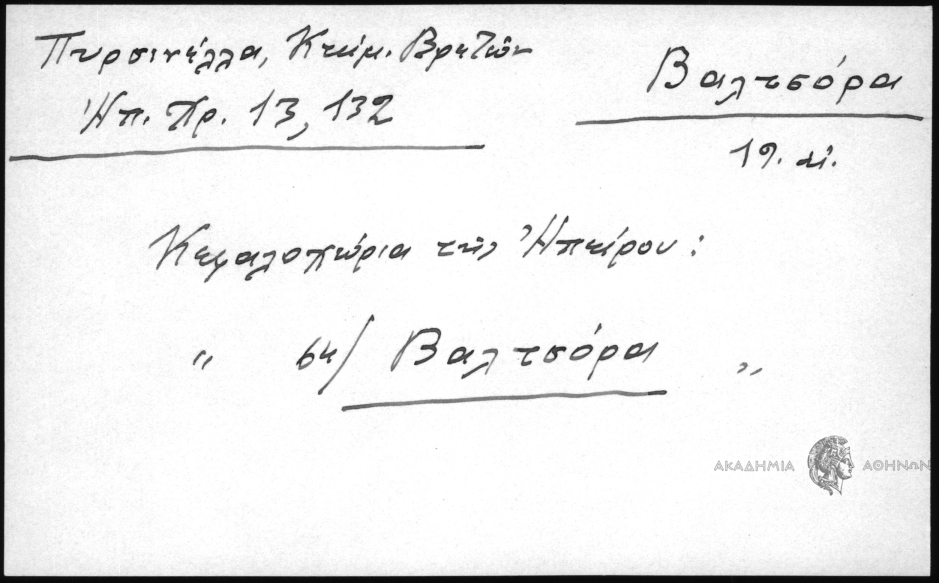 Πυρσινέλλα, Κτήμ. Βρετῶν
Ἠπ. Χρ. 13, 132
Βαλτσόρα
19. αἰ.
Κεφαλοχώρια τῆς Ἠπείρου :
" 64/ Βαλτσόρα "
ΑΚΑΔΗΜΙΑ ΑΘΗΝΩΝ